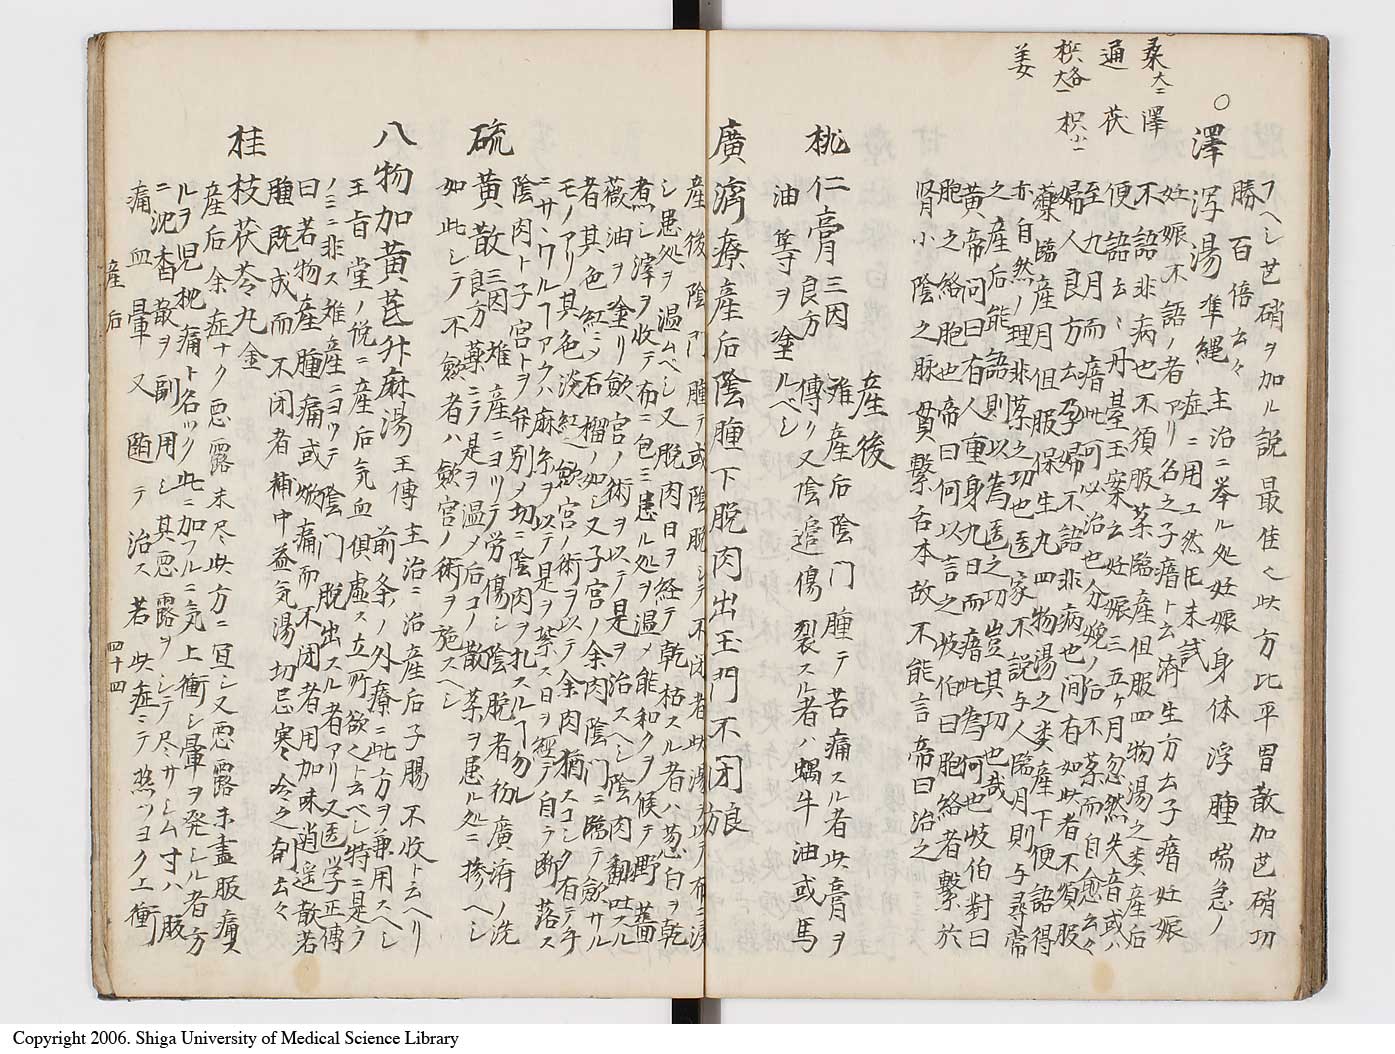 桑大二 澤
通 茯
棋各大一 枳小一
姜
フヘシ芒硝ヲ加ル説最佳之此方比平胃散加芒硝功
勝百倍云々
○澤瀉湯 準縄 主治ニ挙ル処妊娠身体浮腫喘急ノ
症ニ用ユ然圧未試
妊娠不語ノ者アリ名之子瘖ト云済生方云子瘖妊娠
不語非病也不須服薬臨産但服四物湯之类産后
便語云々丹臺玉案云妊娠三五ヶ月忽然失音或ハ
至九月而瘖此可以治也分娩ノ后不薬而自愈云々
婦人良方云孕婦不語非病也间有如此者不須服
薬臨産月但服保生九四物湯之类産下便語得
亦自然ノ理非薬之功也医家不説与人臨月則与尋常
之産后能語則以為医之功豈其功也哉
黄帝问曰有人重身九日而瘖此為何也岐伯對曰
胞之絡胞也帝曰何以言之岐伯曰胞絡者繋於
腎小陰之脉貫繋舌本故不能言帝曰治之
産後
桃仁膏 三因 良方 難産后陰门腫テ苦痛スル者此膏ヲ
傅ク又陰邉傷裂スル者ハ蝸牛油或馬
油等ヲ塗ルベシ
廣濟療産后陰腫下脱肉出玉門不闭方
産後陰门腫テ或陰脱シテ不闭者此湯ヲ以テ布ニ浸
シ患処ヲ温ムベシ又脱肉日ヲ経テ乾枯スル者ハ葱白ヲ乾
煮シ滓ヲ收テ布ニ包ミ患ル処ヲ温メ能和クヲ候テ野薔
薇油ヲ塗リ斂宮ノ術ヲ以テ是ヲ治スヘシ陰肉翻吐スル
者其色紅ニメ石榴ノ如シ又子宮ノ余肉陰门ニ臨テ斂サル
モノアリ其色淡紅斂宮ノ術ヲ以テ余肉猶スコシク有テ手
ニサワルヿアラハ麻糸ヲ以テ是ヲ禁ス日ヲ經テ自テ断落ス
陰肉ト子宮トヲ弁別メ切ニ陰肉ヲ扎スルヿ勿レ廣済ノ洗
硫黄散 三因良方 難産ニヨツテ労傷シ陰脱者初
薬ニテ是ヲ温メ后コノ散薬ヲ患ル処ニ摻ヘシ
如此シテ不斂者ハ斂宮ノ術ヲ施スヘシ
八物加黄芪升麻湯 王傳 主治ニ治産后子腸不收ト云ヘリ
前条ノ外療ニ此方ヲ兼用スヘシ
王肯堂ノ悦ニ産后気血俱虚ス立所欲ヘト云ベシ特ニ是ラ
ノミニ非ス难産ニヨツテ陰门脱出スル者アリ又医学正傳
曰若物産腫痛或焮痛而不闭者用加味逍遥散若
腫既成而不闭者補中益気湯切忌寒冷之剤云々
桂枝茯苓丸 金
産后余症ナク悪露未尽此方ニ冝シ又悪露未盡服痛
ルヲ児枕痛ト名ツク此ニ加フルニ気上衝シ暈ヲ発シル者方
ニ沈香散ヲ副用シ其悪露ヲシテ尽サシム寸ハ腹
痛血暈又随テ治ス若此症ニテ熱ツヨク上衝
産后 四十四
Copyright 2006. Shiga University of Medical Science Library